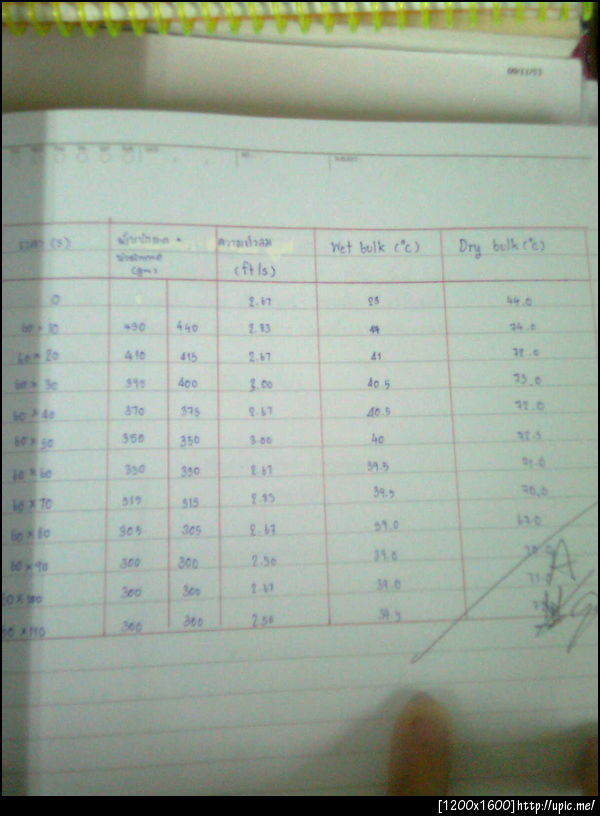 เวลา (s) ความเร็วลม Wet bulk (°c) Dry bulk (°c)
(gm) (ft/s)
0 2.67 25 44.0
60 × 10 430 440 2.83 74.0
60 × 20 410 415 2.67 41 72.0
60 × 30 395 400 3.00 40.5 73.0
60 × 40 370 375 2.67 40.5 72.0
60 × 50 350 350 3.00 40 72.5
60 × 60 330 330 2.67 39.5 71.0
60 × 70 315 315 2.83 39.5 70.0
60 × 80 305 305 2.67 39.0
60 × 90 300 300 2.50 39.0
60 × 100 300 300 2.67 39.0
60 × 110 300 300 2.50 39.5
[1200x1600]http://upic.me/